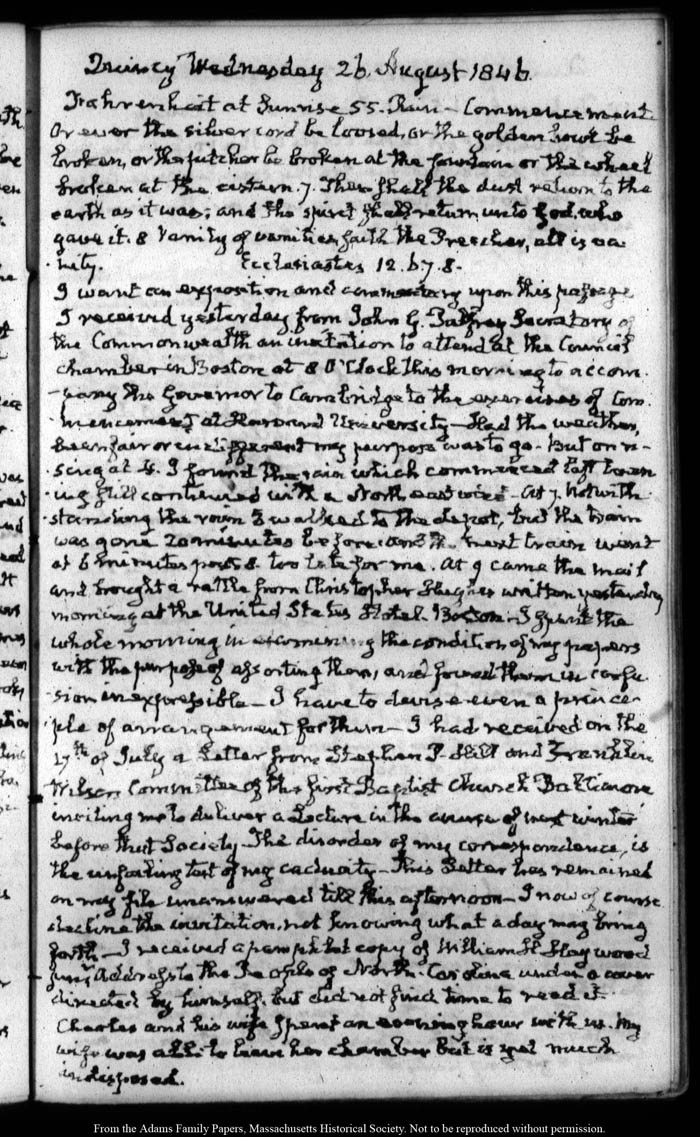 Quincy Wednesday 26. August 1846.
Fahrenheit at Sunrise 55. Rain — Commencement
Or ever the silver cord be loosed, or the golden bowl be
broken, or the pitcher be broken at the fountain or the wheel
broken at the cistern. 7. Then shall the dust return to the
earth as it was; and the spirit shall return unto God, who
gave it. 8 Vanity of vanities, saith the Preacher, all is va-
nity. Ecclesiastes 12. 6. 7. 8.
I want an exposition and commentary upon this passage
I received yesterday from John G. Palfrey Secretary of
the Commonwealth an invitation to attend at the Council
chamber in Boston at 8 O'Clock this morning to accom-
-pany the Governor to Cambridge to the exercises of Com-
mencement at Harvard University — Had the weather
been fair or indifferent my purpose was to go. But on ri-
sing at 4. I found the rain which commenced last Even-
ing still continued with a North east wind — At 7. Notwith-
standing the rain I walked to the depot, but the train
was gone 20 minutes before and the next train went
at 6 minutes past 8. too late for me. At 9 came the mail
and brought a letter from Christopher Hughes written yesterday
morning at the United States Hotel. Boston. I spent the
whole morning in examining the condition of my papers
with the purpose of assorting them, and found them in confu-
sion inexpressible — I have to devise even a princi-
ple of arrangement for them — I had received on the
17th of July a Letter from Stephen P. Hill and Franklin
Wilson Committee of the first Baptist Church Baltimore
inviting me to deliver a Lecture in the course of next winter
before that Society — The disorder of my correspondence, is
the unfailing test of my caducity — This Letter has remained
on my file unanswered till this afternoon — I now of course
decline the invitation, not knowing what a day may bring
forth — I received a pamphlet copy of William H. Haywood
junr. Address to the People of North Carolina under a cover
directed by himself, but did not find time to read it.
Charles and his wife spent an evening hour with us. My
wife was able to leave her chamber but is yet much
indisposed.
From the Adams Family Papers, Massachusetts Historical Society. Not to be reproduced without permission.